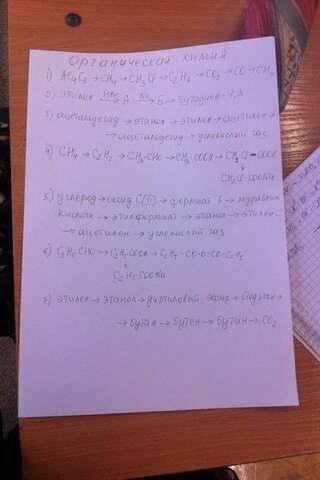 Органическая химия
1) Al₄C₃ → CH₄ → CH₃Cl → C₂H₆ → CO₂ → CO → CH₄
2) этилен →HBr A →Na Б → бутадиен-1,3
3) ацетальдегид → этанол → этилен → ацетилен →
→ ацетальдегид → углекислый газ
4) CH₄ → C₂H₂ → CH₃CHO → CH₃COOH → CH₂Cl-COOH
↓
CH₂Cl-COONa
5) углерод → оксид C(II) → формиат → муравьин.
кислота → этилформиат → этанол → этилен →
→ ацетилен → углекислый газ
6) C₂H₅CHO → C₂H₅COOH → C₂H₅-CO-O-CO-C₂H₅
↓
C₂H₅COONa
7) этилен → этанол → диэтиловый эфир → →
→ бутан → бутен → бутин → CO₂